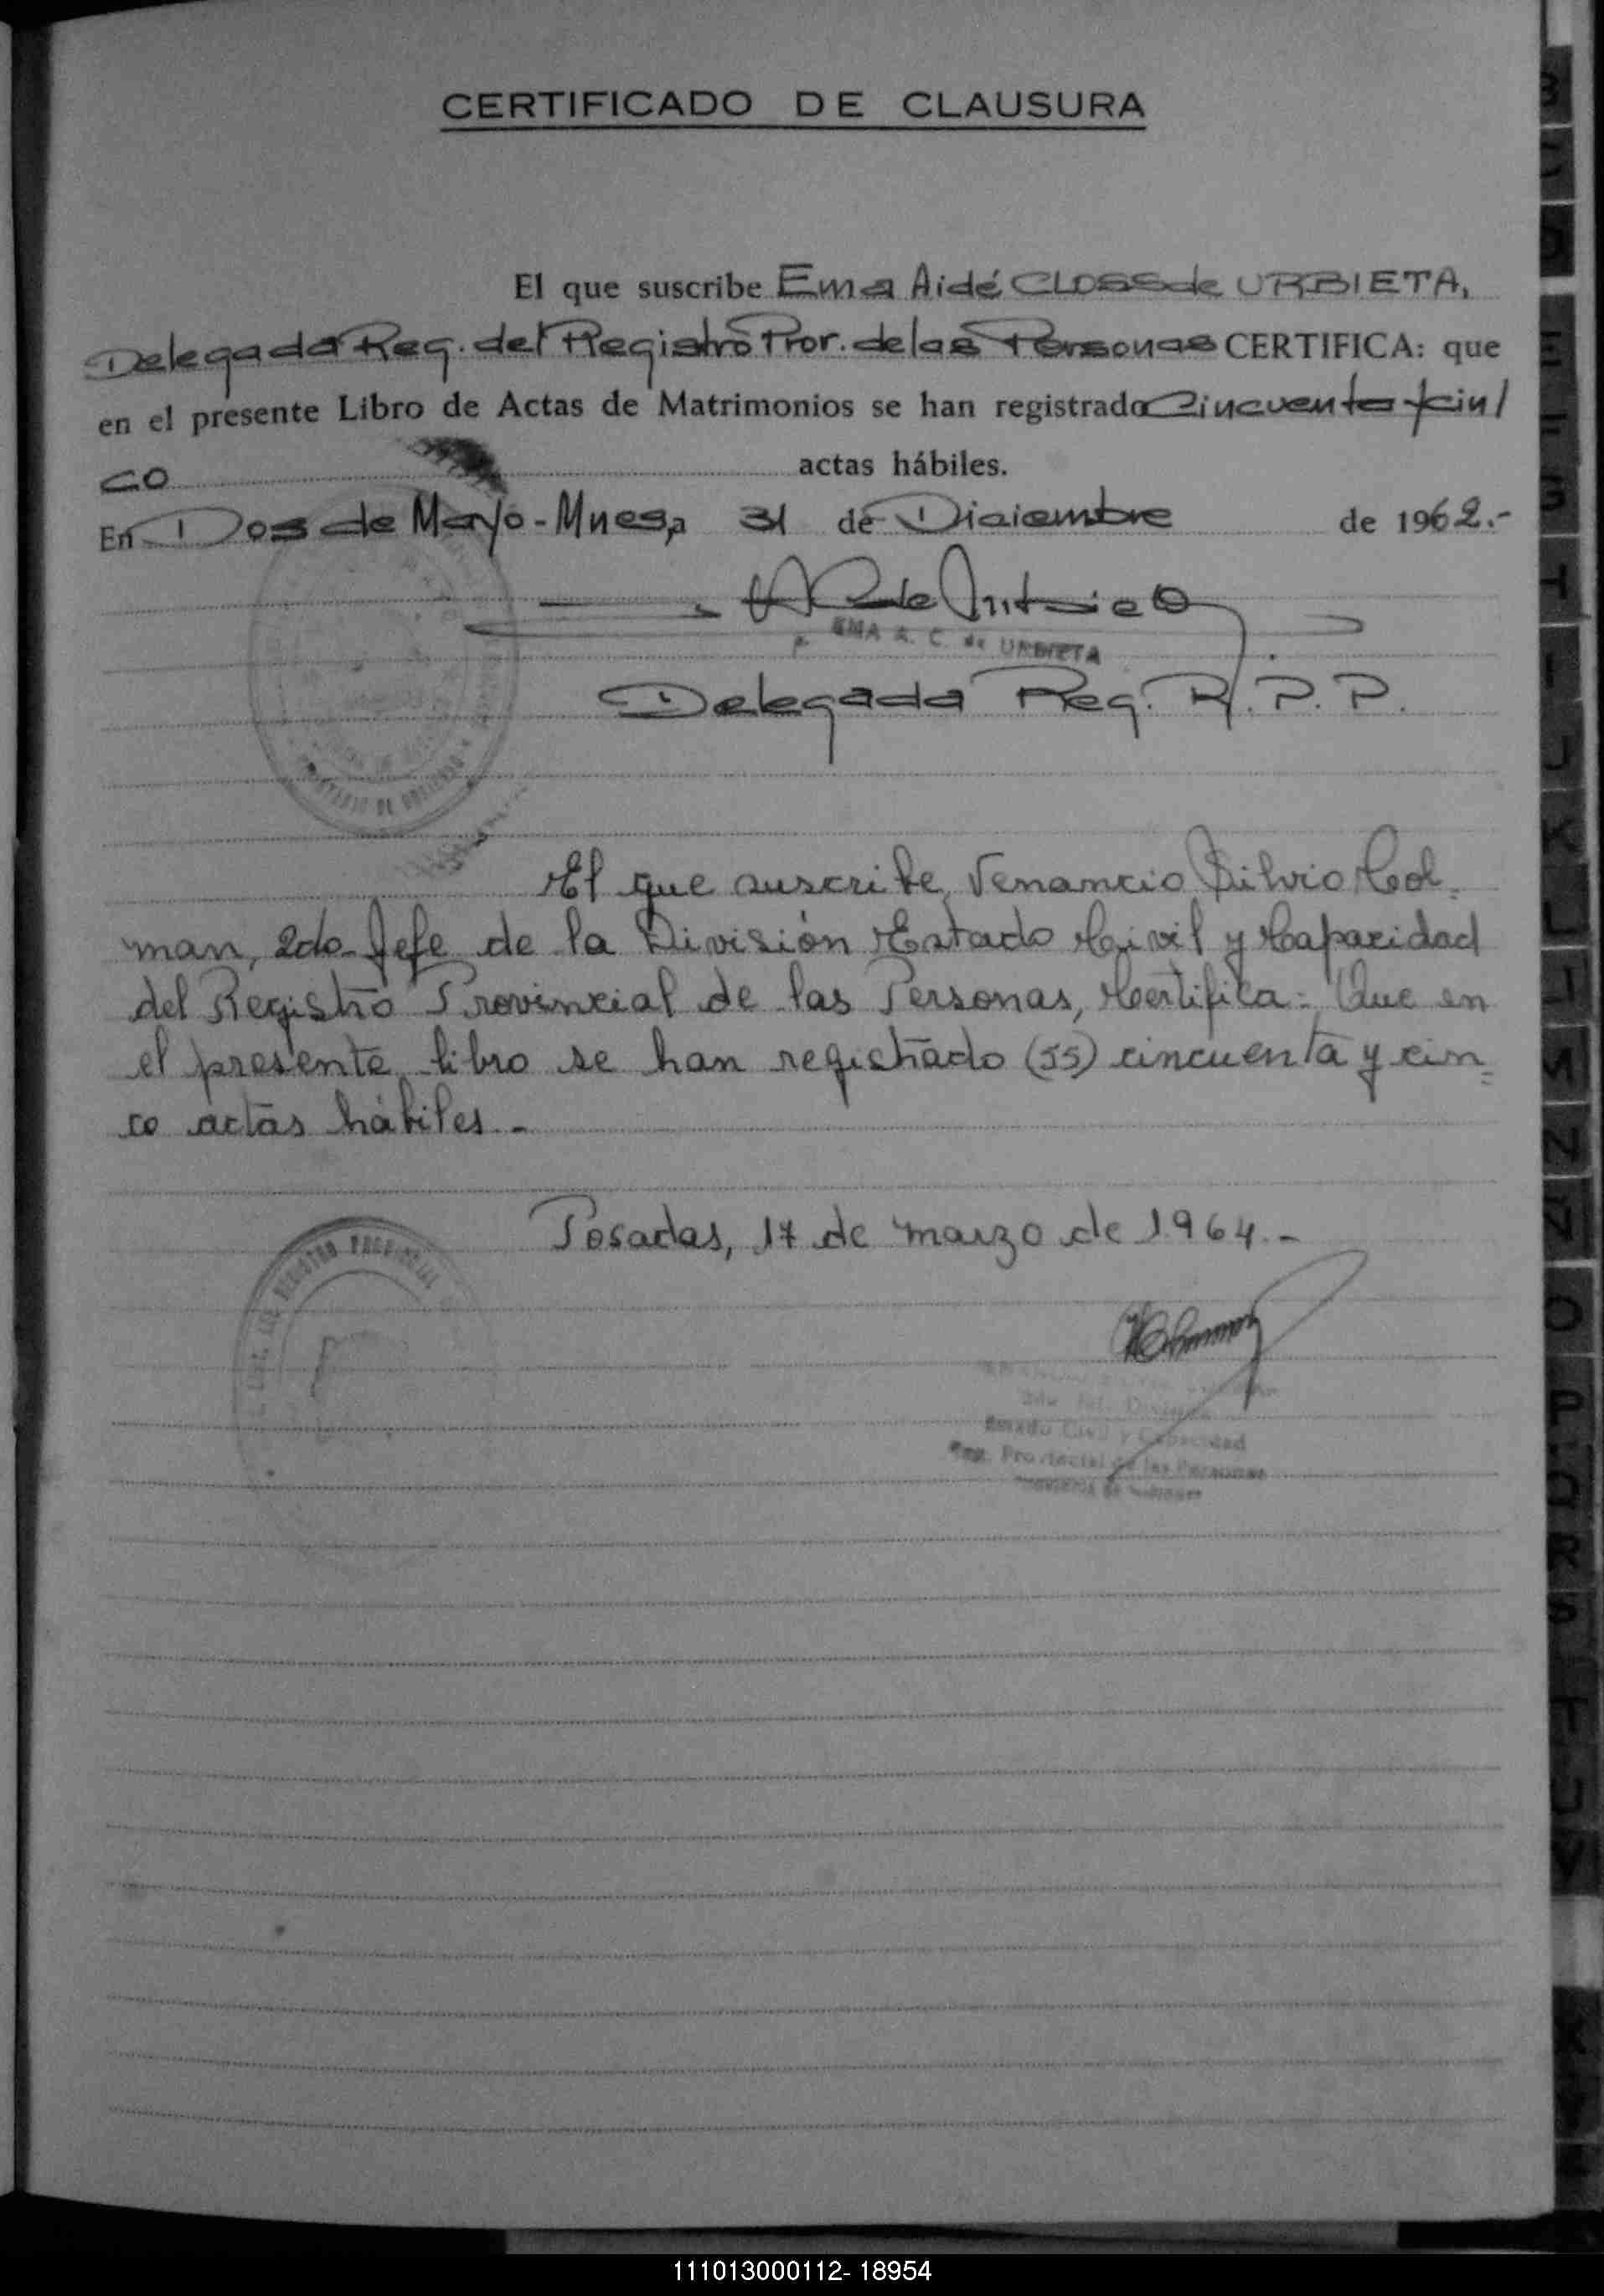 CERTIFICADO DE CLAUSURA
El que suscribe Ema Aidé CLOSS de URBIETA,
Delegada Reg. del Registro Pror. de las Personas CERTIFICA: que
en el presente Libro de Actas de Matrimonios se han registrado Cincuenta y cin/
co actas hábiles.
En Dos de Mayo - Mnes, a 31 de Diciembre de 1962.-
EMA A. C. de URBIETA
Delegada Reg. R. P. P.
El que suscribe, Venancio Silvio Col-
man, 2do Jefe de la División Estado Civil y Capacidad
del Registro Provincial de las Personas, Certifica: Que en
el presente libro se han registrado (55) cincuenta y cin=
co actas hábiles.-
Posadas, 17 de marzo de 1964.-
REGISTRO PROVINCIAL
Estado Civil y Capacidad
Reg. Provincial de las Personas
111013000112- 18954